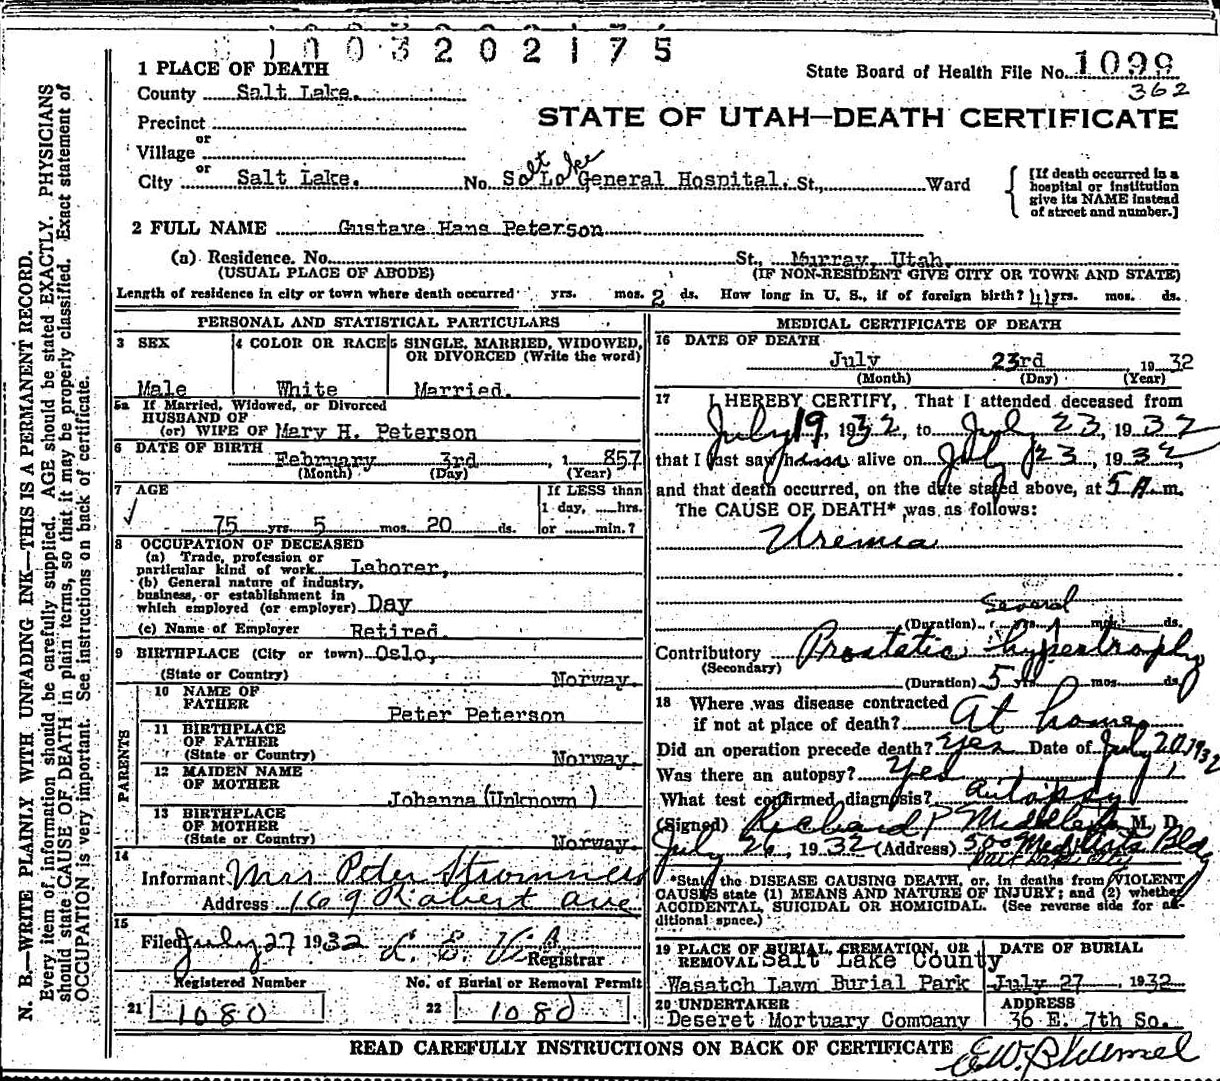 1003202175
State Board of Health File No. 1099
362
1 PLACE OF DEATH
County Salt Lake.
STATE OF UTAH—DEATH CERTIFICATE
Precinct
or
Village
or
City Salt Lake. No. Salt Lake General Hospital. St., Ward
[If death occurred in a
hospital or institution
give its NAME instead
of street and number.]
2 FULL NAME Gustave Hans Peterson
(a) Residence. No. St., Murray, Utah.
(USUAL PLACE OF ABODE) (IF NON-RESIDENT GIVE CITY OR TOWN AND STATE)
Length of residence in city or town where death occurred yrs. mos. 2 ds. How long in U. S., if of foreign birth? yrs. mos. ds.
PERSONAL AND STATISTICAL PARTICULARS
3 SEX
Male
4 COLOR OR RACE
White
5 SINGLE, MARRIED, WIDOWED,
OR DIVORCED (Write the word)
Married.
5a If Married, Widowed, or Divorced
HUSBAND OF
(or) WIFE OF Mary H. Peterson
6 DATE OF BIRTH
February 3rd, 1857
(Month) (Day) (Year)
7 AGE
75 yrs. 5 mos. 20 ds.
If LESS than
1 day, hrs.
or min.?
8 OCCUPATION OF DECEASED
(a) Trade, profession or
particular kind of work Laborer,
(b) General nature of industry,
business, or establishment in
which employed (or employer) Day
(c) Name of Employer Retired.
9 BIRTHPLACE (City or town) Oslo,
(State or Country) Norway.
PARENTS
10 NAME OF
FATHER Peter Peterson
11 BIRTHPLACE
OF FATHER
(State or Country) Norway.
12 MAIDEN NAME
OF MOTHER
Johanna (Unknown)
13 BIRTHPLACE
OF MOTHER
(State or Country) Norway.
14
Informant Mrs Peter Stromness
Address 169 Robert Ave
15
Filed July 27 1932
Registrar
Registered Number
21 1080
No. of Burial or Removal Permit
22 1080
MEDICAL CERTIFICATE OF DEATH
16 DATE OF DEATH
July 23rd 1932
(Month) (Day) (Year)
17 I HEREBY CERTIFY, That I attended deceased from
July 19, 1932, to July 23, 1932
that I last saw him alive on July 23, 1932,
and that death occurred, on the date stated above, at 5 A.m.
The CAUSE OF DEATH* was as follows:
Uremia
Several
(Duration) yrs. mos. ds.
Contributory Prostatic hypertrophy
(Secondary)
(Duration) 5 yrs. mos. ds.
18 Where was disease contracted
if not at place of death? At home
Did an operation precede death? Yes Date of July 20, 1932
Was there an autopsy? Yes
What test confirmed diagnosis? Autopsy
(Signed) Richard P Middleton M. D.
July 26, 1932 (Address) 500 Med Arts Bldg
Salt Lake City
*State the DISEASE CAUSING DEATH, or, in deaths from VIOLENT
CAUSES state (1) MEANS AND NATURE OF INJURY; and (2) whether
ACCIDENTAL, SUICIDAL OR HOMICIDAL. (See reverse side for ad-
ditional space.)
19 PLACE OF BURIAL, CREMATION, OR
REMOVAL Salt Lake County
Wasatch Lawn Burial Park
DATE OF BURIAL
July 27, 1932
20 UNDERTAKER
Deseret Mortuary Company
ADDRESS
36 E. 7th So.
READ CAREFULLY INSTRUCTIONS ON BACK OF CERTIFICATE
N. B.—WRITE PLAINLY WITH UNFADING INK—THIS IS A PERMANENT RECORD.
Every item of information should be carefully supplied. AGE should be stated EXACTLY. PHYSICIANS
should state CAUSE OF DEATH in plain terms, so that it may be properly classified. Exact statement of
OCCUPATION is very important. See instructions on back of certificate.